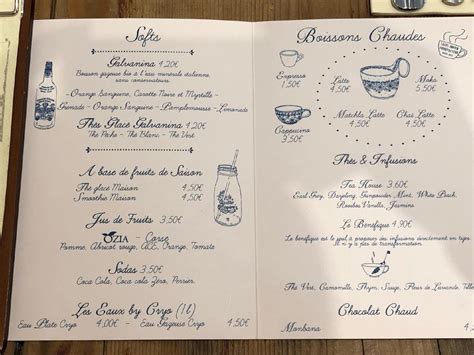 Softs
Galvanina 4,20€
Boisson gazeuse bio à l'eau minérale italienne
sans conservateurs
- Orange Sanguine, Carotte Noire et Myrtille -
Grenade - Orange Sanguine - Pamplemousse - Limonade
Thés Glacé Galvanina 4,20€
Thé Pêche - Thé Blanc - Thé Vert
A base de fruits de Saison
Thé glacé Maison 4,50€
Smoothie Maison 4,50€
Jus de Fruits 3,50€
OZIA - Corse
Pomme, Abricot rouge, ACE, Orange, Tomate
Sodas 3,50€
Coca Cola, Coca cola Zéro, Perrier
Les Eaux by Cryo (1l)
Eau Plate Cryo 4,00€ - Eau Gazeuse Cryo 4,50€
Boissons Chaudes
Expresso
1,50€
Latte
4,50€
Moka
5,50€
Matcha Latte
5,50€
Chaï Latte
5,50€
Cappucino
3,50€
Thés & Infusions
Tea House 3,60€
Earl Grey, Darjeling, Gunpowder, Mint, White Peach,
Rooibos Vanilla, Jasmine
Le Bénéfique 4,90€
Thé Vert, Camomille, Thym, Sauge, Fleur de Lavande, Tilleul
Chocolat Chaud
Monbana